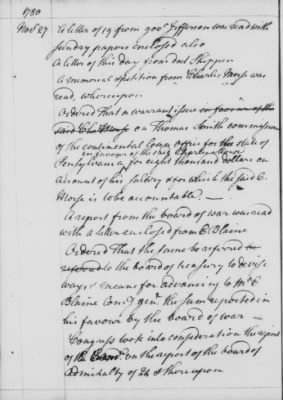 1780
Nov 27
A letter of 19 from govr Jefferson was read with
sundry papers enclosed also
A letter of this day from doct Shippen
A memorial & petition from Charles Morse was
read, whereupon
Ordered That a warrant issue in favour of the
said Cha Morse on Thomas Smith commissioner
of the continental loan office for the state of
in favour of the said Charles Morse
Pensylvania for eight thousand dollars on
account of his salary & for which the said C.
Morse is to be accountable. —
A report from the board of war was read
with a letter enclosed from E Blaine
Ordered That the same be referred to
referred to the board of treasury to devise
ways & means for advancing to Mr E
Blaine Comy genl the sum reported in
his favour by the board of war —
Congress took into consideration the report
of the on the report of the board of
admiralty of 24 & thereupon